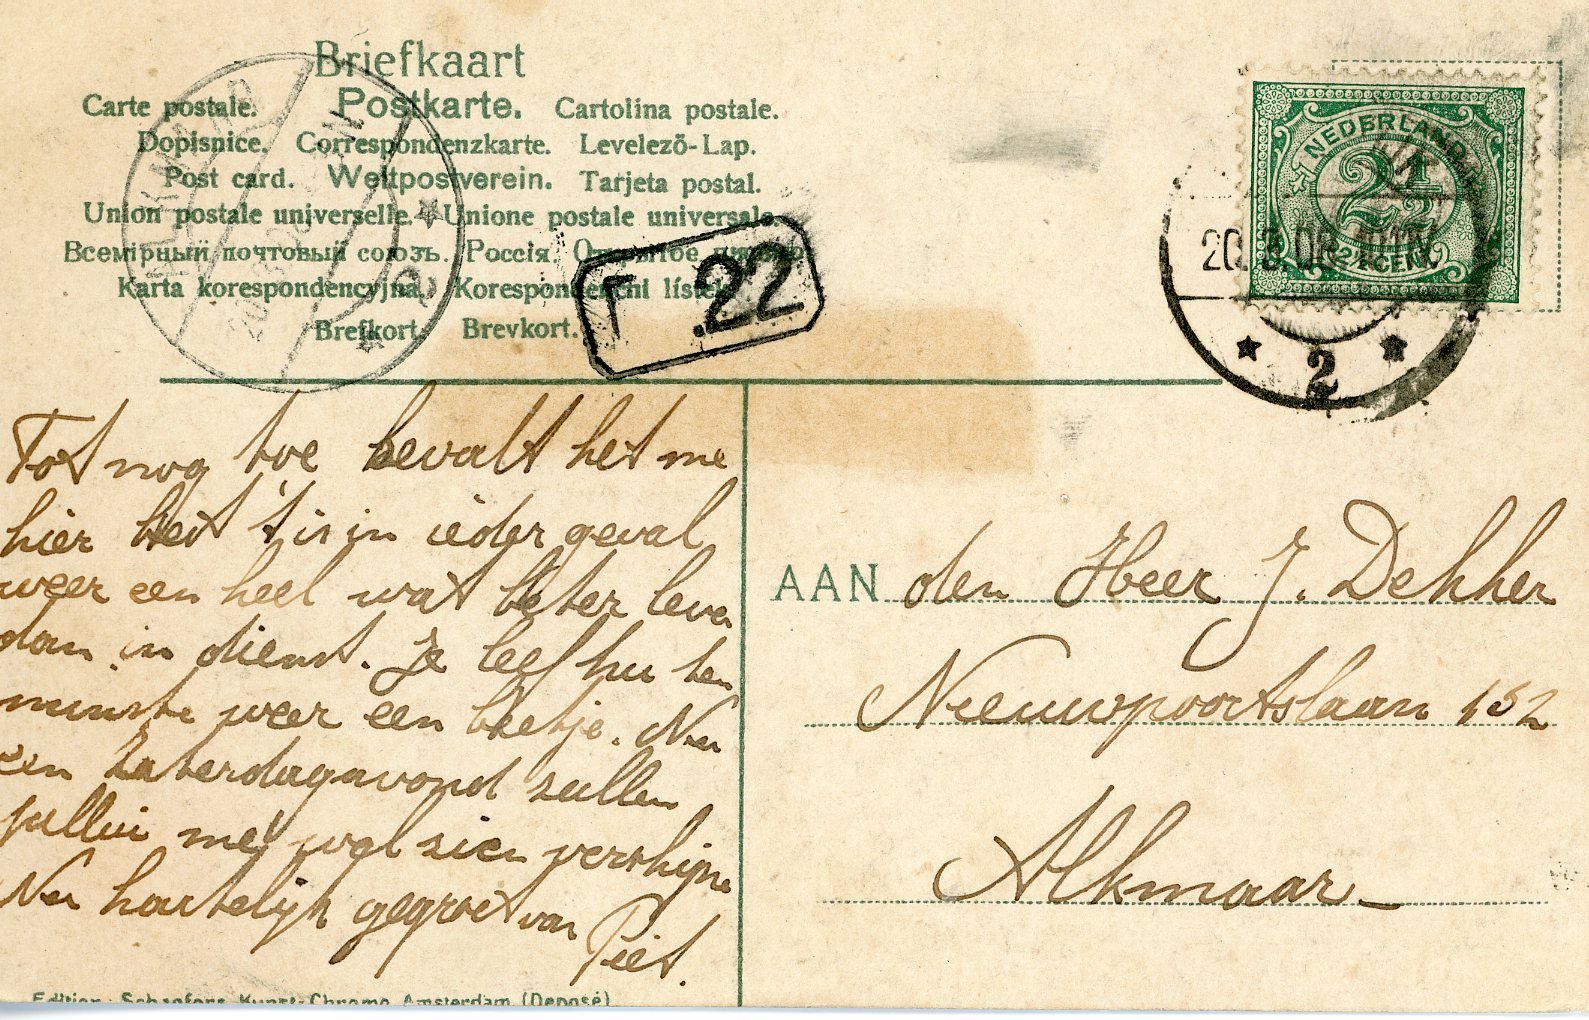 Briefkaart
Carte postale. Postkarte. Cartolina postale.
Dopisnice. Correspondenzkarte. Levelező-Lap.
Post card. Weltpostverein. Tarjeta postal.
Union postale universelle. Unione postale universale
Всемірный почтовый союзъ. Россія. Открытое письмо
Karta korespondencyjna. Korespondenční lístek
Brefkort. Brevkort.
F .22
NEDERLAND
2½
2½ CENT
20. 08
2
Tot nog toe bevalt het me
hier best 't is in ieder geval
weer een heel wat beter leven
dan in dienst. Je leef nu ten
minste weer een beetje. Nu
een zaterdagavond zullen
jullui me wel zien verschijne
Nu hartelijk gegroet van
Piet.
AAN den Heer J. Dekker
Nieuwpoortslaan 152
Alkmaar
Edition Schaefers Kunst-Chromo Amsterdam (Deposé)